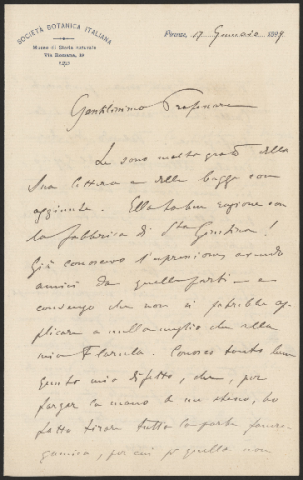 SOCIETÀ BOTANICA ITALIANA
Museo di Storia naturale
Via Romana, 19
Firenze, 17 Gennaio 1899
Gentilissimo Professore
Le sono molto grato della
Sua lettera e della
aggiunta. Ella ha ben ragione con
la fabbrica di Sta Giustina!
Già conoscevo l'espressione avendo
amici da quelle parti e
convengo che non si potrebbe ap-
plicare a nulla meglio che alla
mia Florula. Conosco tanto bene
questo mio difetto, che, per
forzar la mano a me stesso, ho
fatto tirare tutta la parte fanero-
gamica, per cui per quella non